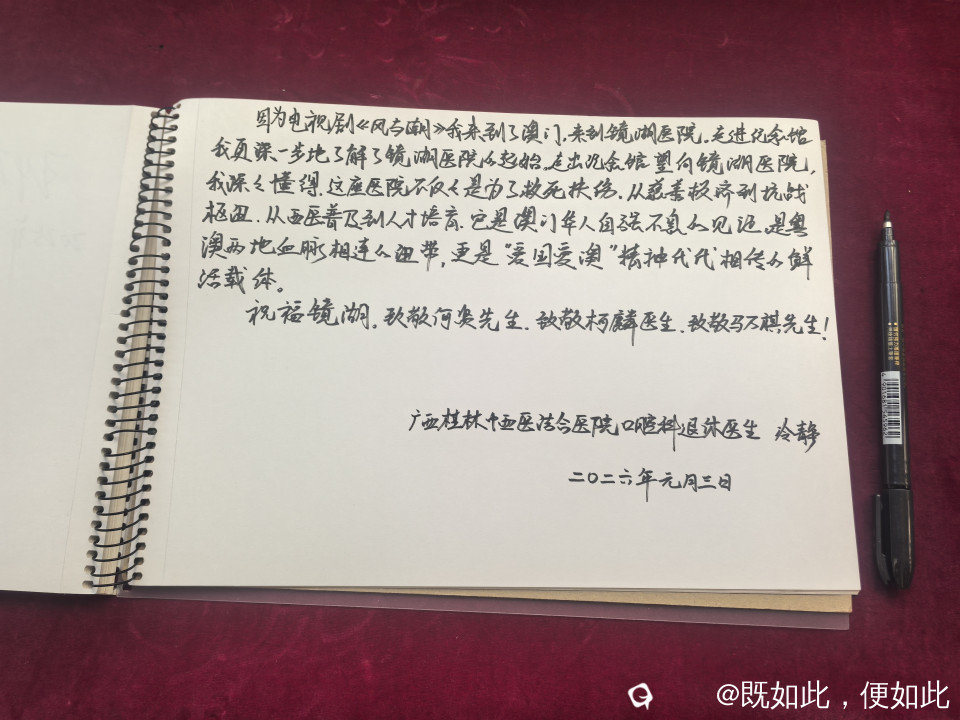 因为电视剧《风与潮》我来到了澳门，来到镜湖医院。走进纪念馆
我更深一步地了解了镜湖医院的起始。走出纪念馆望向镜湖医院，
我深深懂得，这座医院不仅仅是为了救死扶伤。从慈善救济到抗战
枢纽、从西医普及到人才培育、它是澳门华人自强不息的见证，是粤
澳两地血脉相连的纽带，更是“爱国爱澳”精神代代相传的鲜
活载体。
祝福镜湖，致敬何贤先生、致敬柯麟医生、致敬马万祺先生！
广西桂林中西医结合医院口腔科退休医生 冷静
二〇二六年元月三日
@既如此，便如此